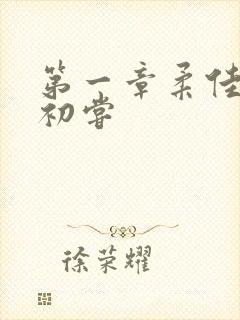 第一章柔佳
初尝
徐荣耀